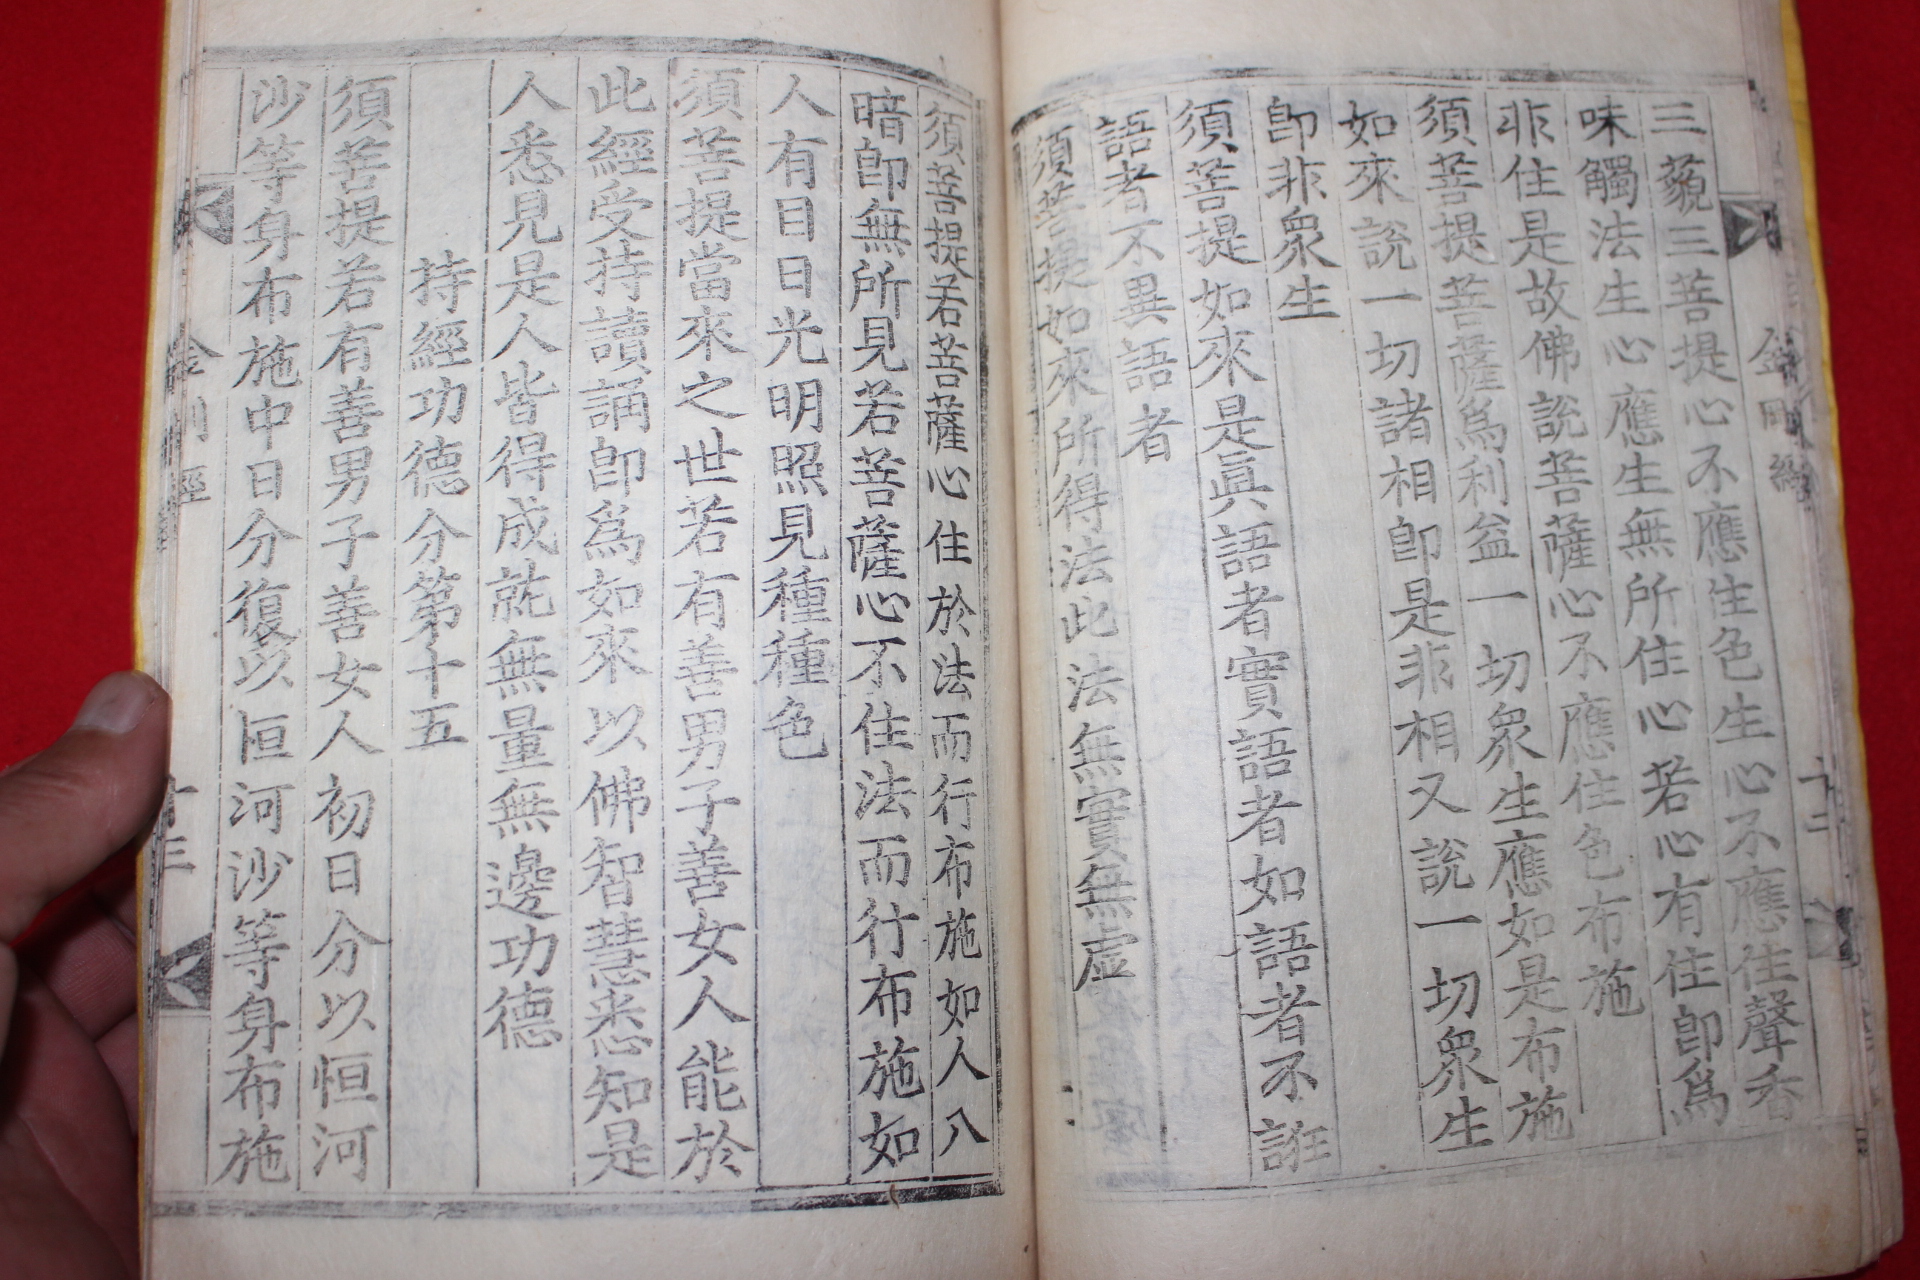 金剛經
十二
三藐三菩提心不應住色生心不應住聲香
味觸法生心應生無所住心若心有住卽爲
非住是故佛說菩薩心不應住色布施
須菩提菩薩爲利益一切衆生應如是布施
如來說一切諸相卽是非相又說一切衆生
卽非衆生
須菩提如來是眞語者實語者如語者不誑
語者不異語者
須菩提如來所得法此法無實無虛
須菩提若菩薩心住於法而行布施如人入
暗卽無所見若菩薩心不住法而行布施如
人有目日光明照見種種色
須菩提當來之世若有善男子善女人能於
此經受持讀誦卽爲如來以佛智慧悉知是
人悉見是人皆得成就無量無邊功德
持經功德分第十五
須菩提若有善男子善女人初日分以恒河
沙等身布施中日分復以恒河沙等身布施
金剛經
十三